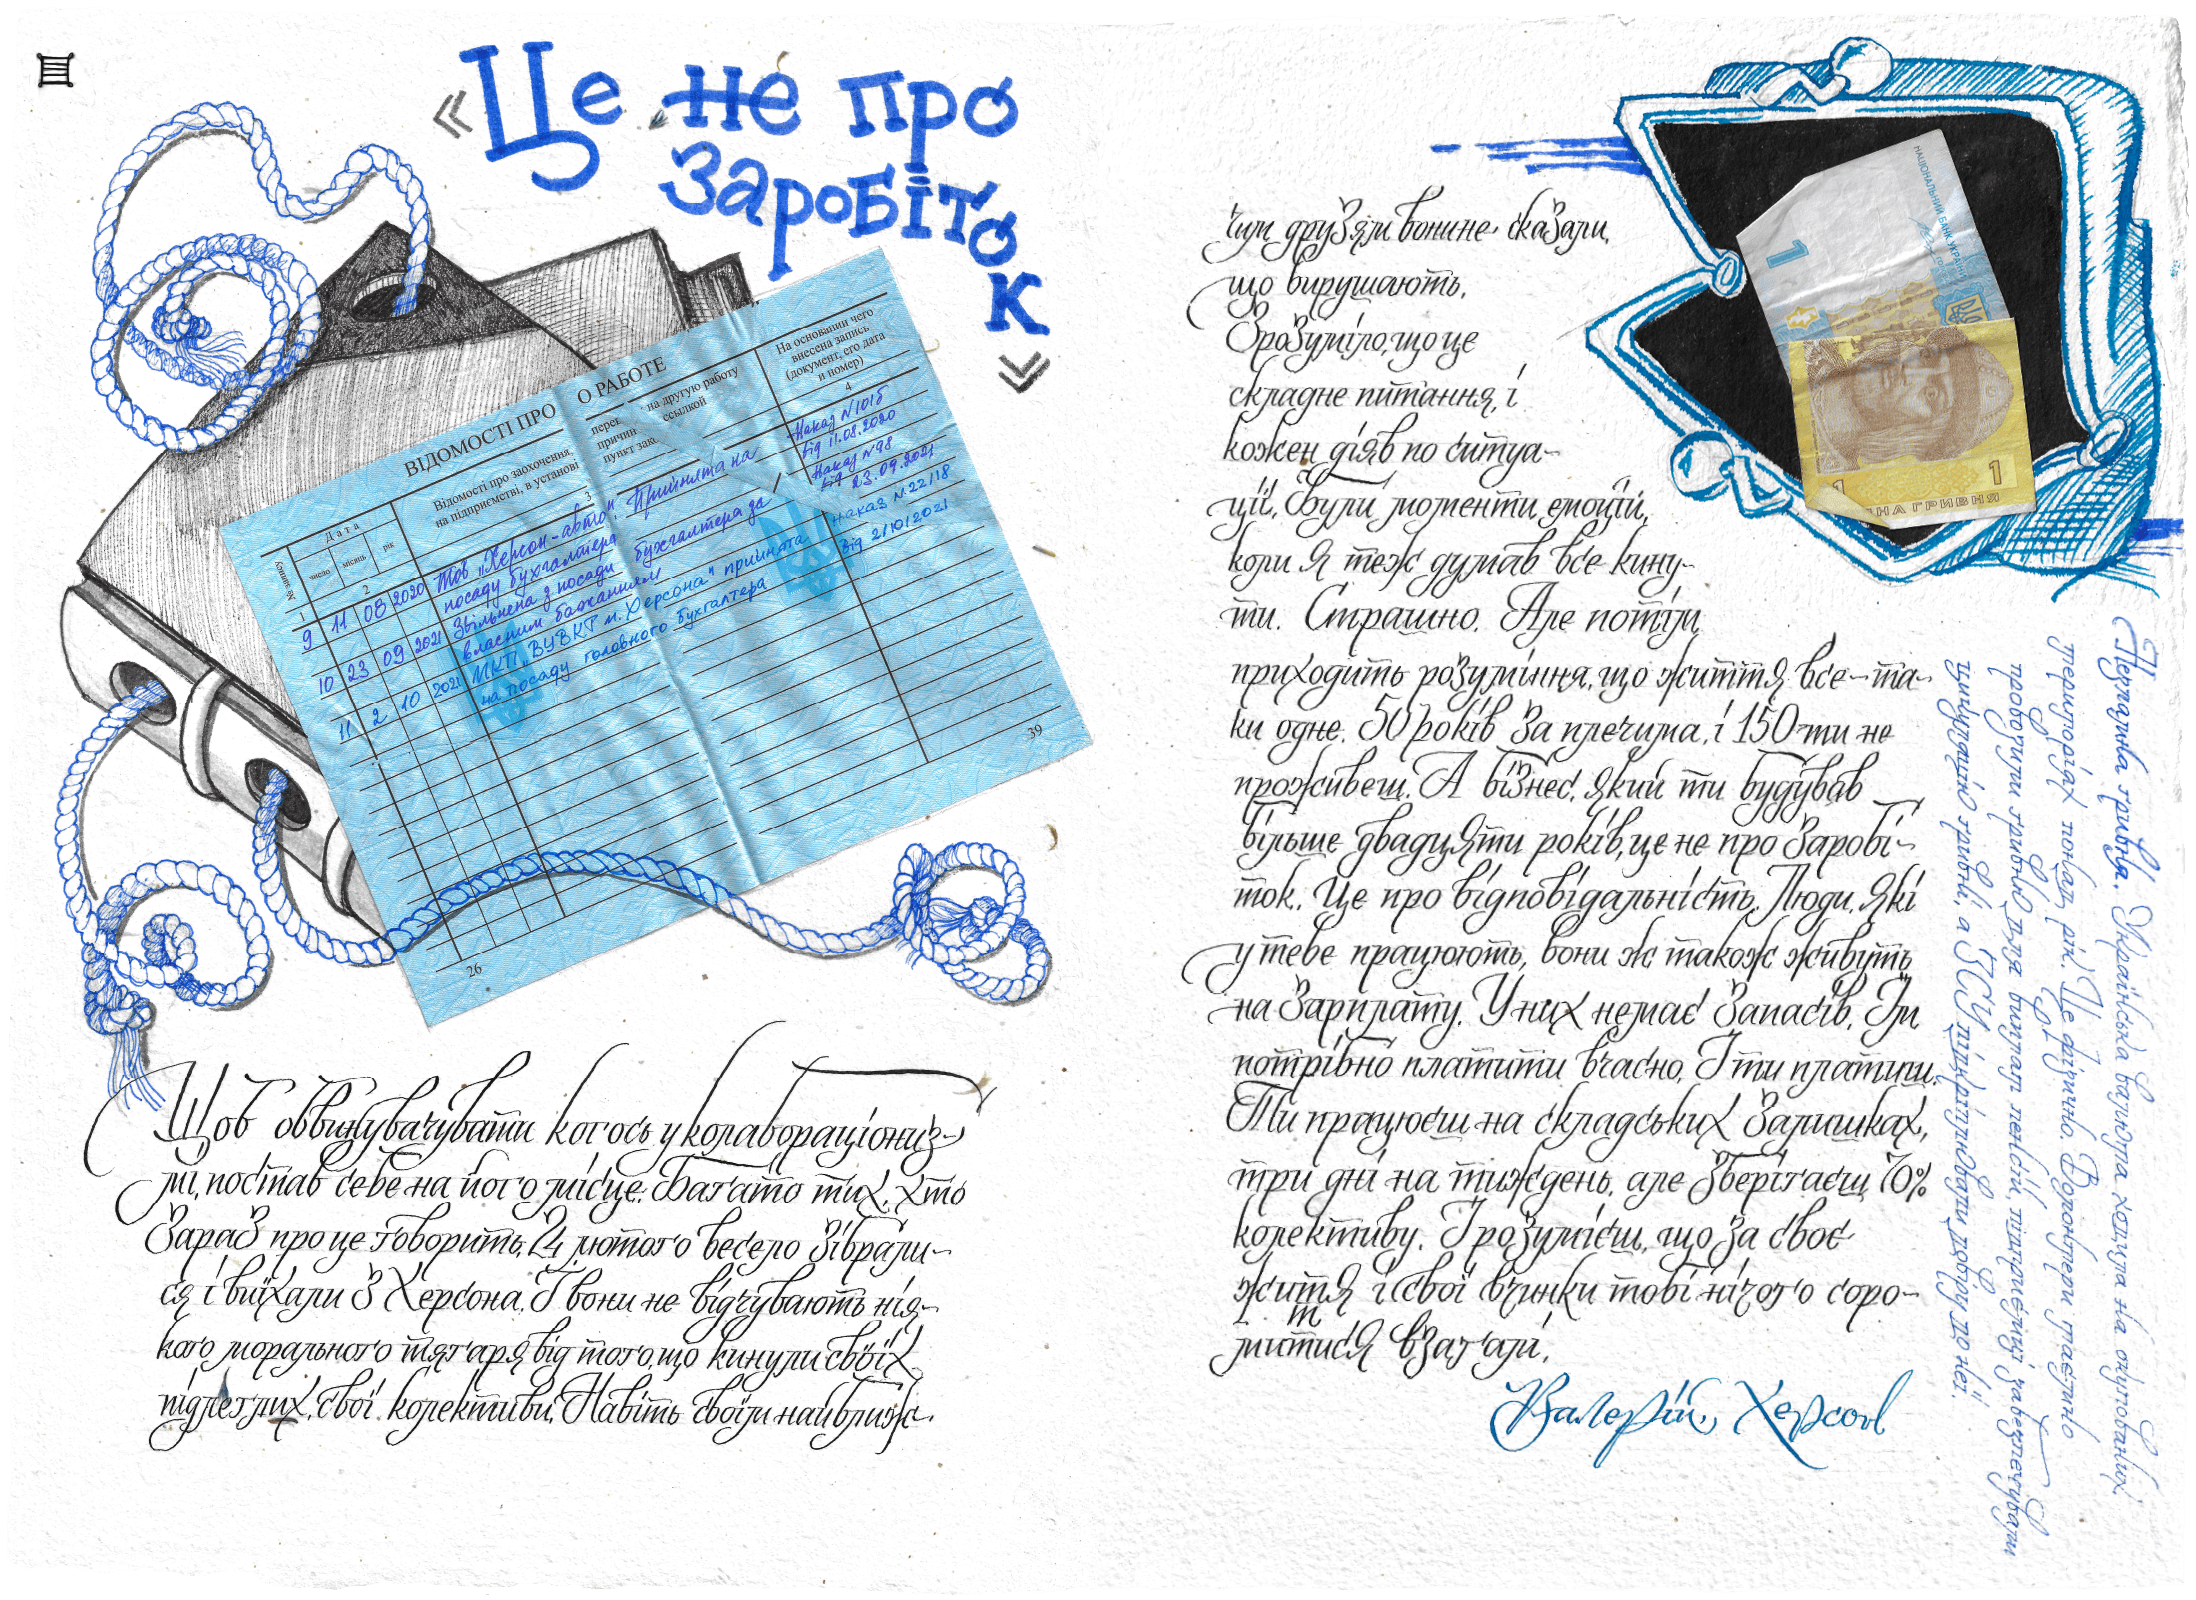 «Це не про
заробіток»
ВІДОМОСТІ ПРО
О РАБОТЕ
№ запису
Дата
число
місяць
рік
Відомості про заохочення,
на підприємстві, в установі
перев
на другую работу
причин
ссылкой
пункт зако
На основании чего
внесена запись
(документ, его дата
и номер)
1
2
3
4
9 11 08 2020 Тов „Херсон-авто". Прийнята на
посаду бухгалтера
Наказ №101б
від 11.08.2020
10 23 09 2021 Звільнена з посади бухгалтера за
власним бажанням
Наказ №98
від 23.09.2021
11 2 10 2021 МКП „ВУВКГ м. Херсона" прийнята
на посаду головного бухгалтера
наказ №22/18
від 2/10/2021
26
39
Щоб обвинувачувати когось у колабораціоніз-
мі, постав себе на його місце. Багато тих, хто
зараз про це говорить, 24 лютого весело зібрали-
ся і виїхали з Херсона. І вони не відчувають нія-
кого морального тягаря від того, що кинули своїх
підлеглих, свої колективи. Навіть своїм найближ-
чим друзям вони не сказали,
що вирушають.
Зрозуміло, що це
складне питання, і
кожен діяв по ситуа-
ції. Були моменти емоцій,
коли я теж думав все кину-
ти. Страшно. Але потім
приходить розуміння, що життя все-та-
ки одне. 50 років за плечима, і 150 ти не
проживеш. А бізнес, який ти будував
більше двадцяти років, це не про заробі-
ток. Це про відповідальність. Люди, які
у тебе працюють, вони ж також живуть
на зарплату. У них немає запасів. Їм
потрібно платити вчасно. І ти платиш.
Ти працюєш на складських залишках,
три дні на тиждень, але зберігаєш 70%
колективу. І розумієш, що за своє
життя і свої вчинки тобі нічого соро-
митися взагалі.
Валерій, Херсон
НАЦІОНАЛЬНИЙ БАНК УКРАЇНИ
1
1
1
НА ГРИВНЯ
Незламна гривня. Українська валюта ходила на окупованих
територіях понад рік. Це фізично. Волонтери таємно
провозили гривню для виплат пенсій, підприємці забезпечували
циркуляцію гривні, а ЗСУ підкріплювали довіру до неї.